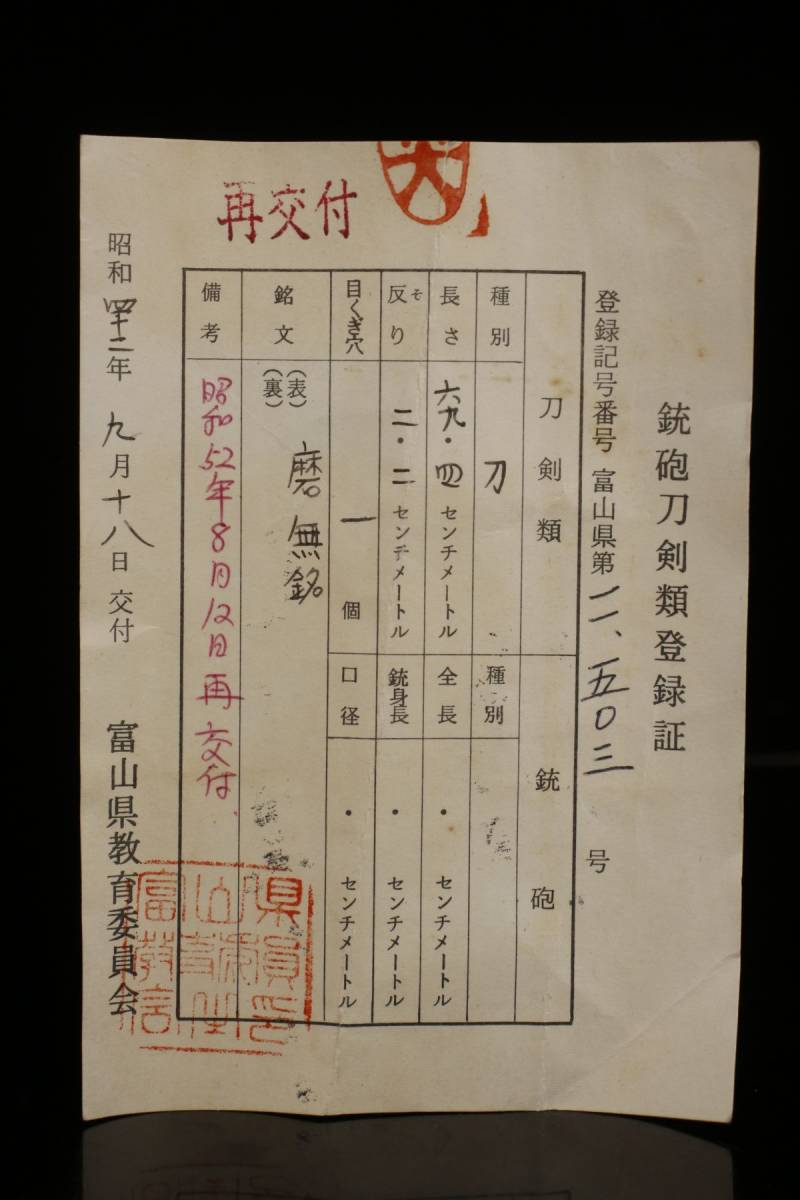 銃砲刀剣類登録証
登録記号番号 富山県第 一一、五〇三 号
刀剣類
種別 刀
長さ 六九・四センチメートル
反り そ 二・二センチメートル
目くぎ穴 一個
銘文 (表) 磨無銘
(裏)
備考 昭和52年8月12日再交付
銃砲
種別
全長 ・センチメートル
銃身長 ・センチメートル
口径 ・センチメートル
再交付
昭和四十二年九月十八日交付
富山県教育委員会